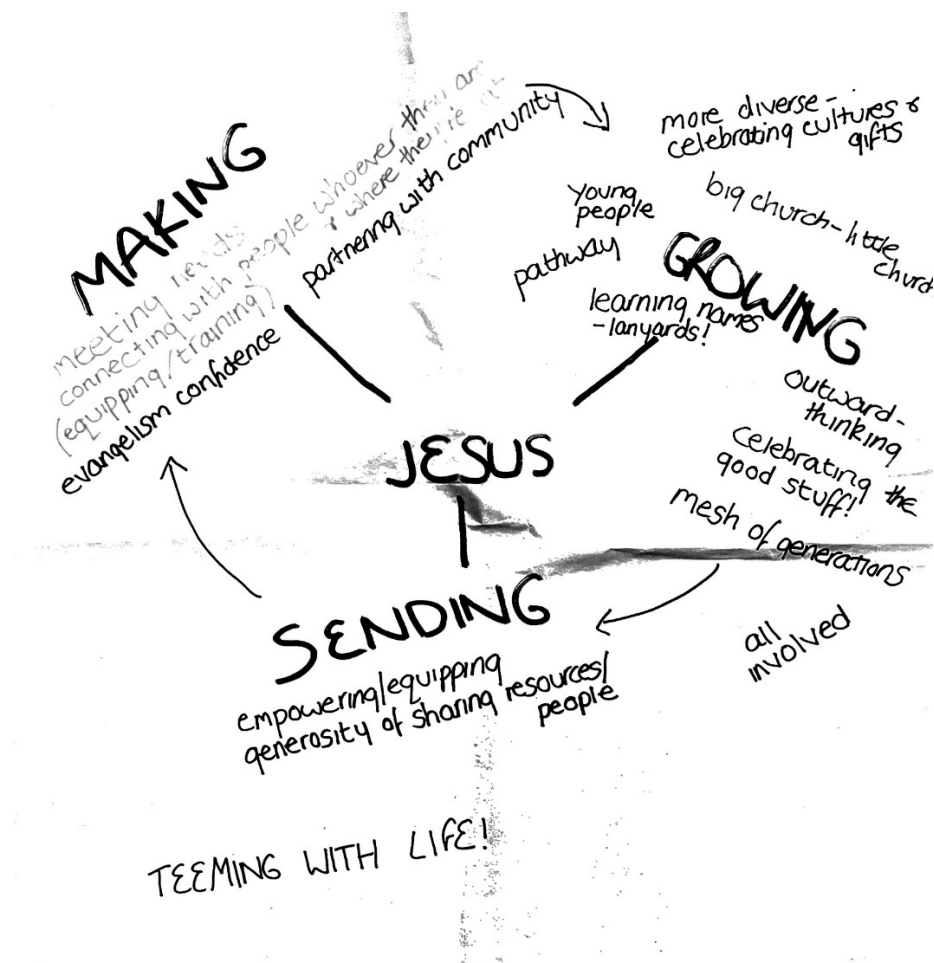 MAKING
meeting needs
connecting with people whoever they are
& where they're at
(equipping/training)
evangelism confidence
partnering with community
more diverse -
celebrating cultures &
gifts
big church - little
church
young
people
pathway
GROWING
learning names
- lanyards!
outward-
thinking
celebrating the
good stuff!
mesh of generations
all
involved
JESUS
SENDING
empowering/equipping
generosity of sharing resources/
people
TEEMING WITH LIFE!